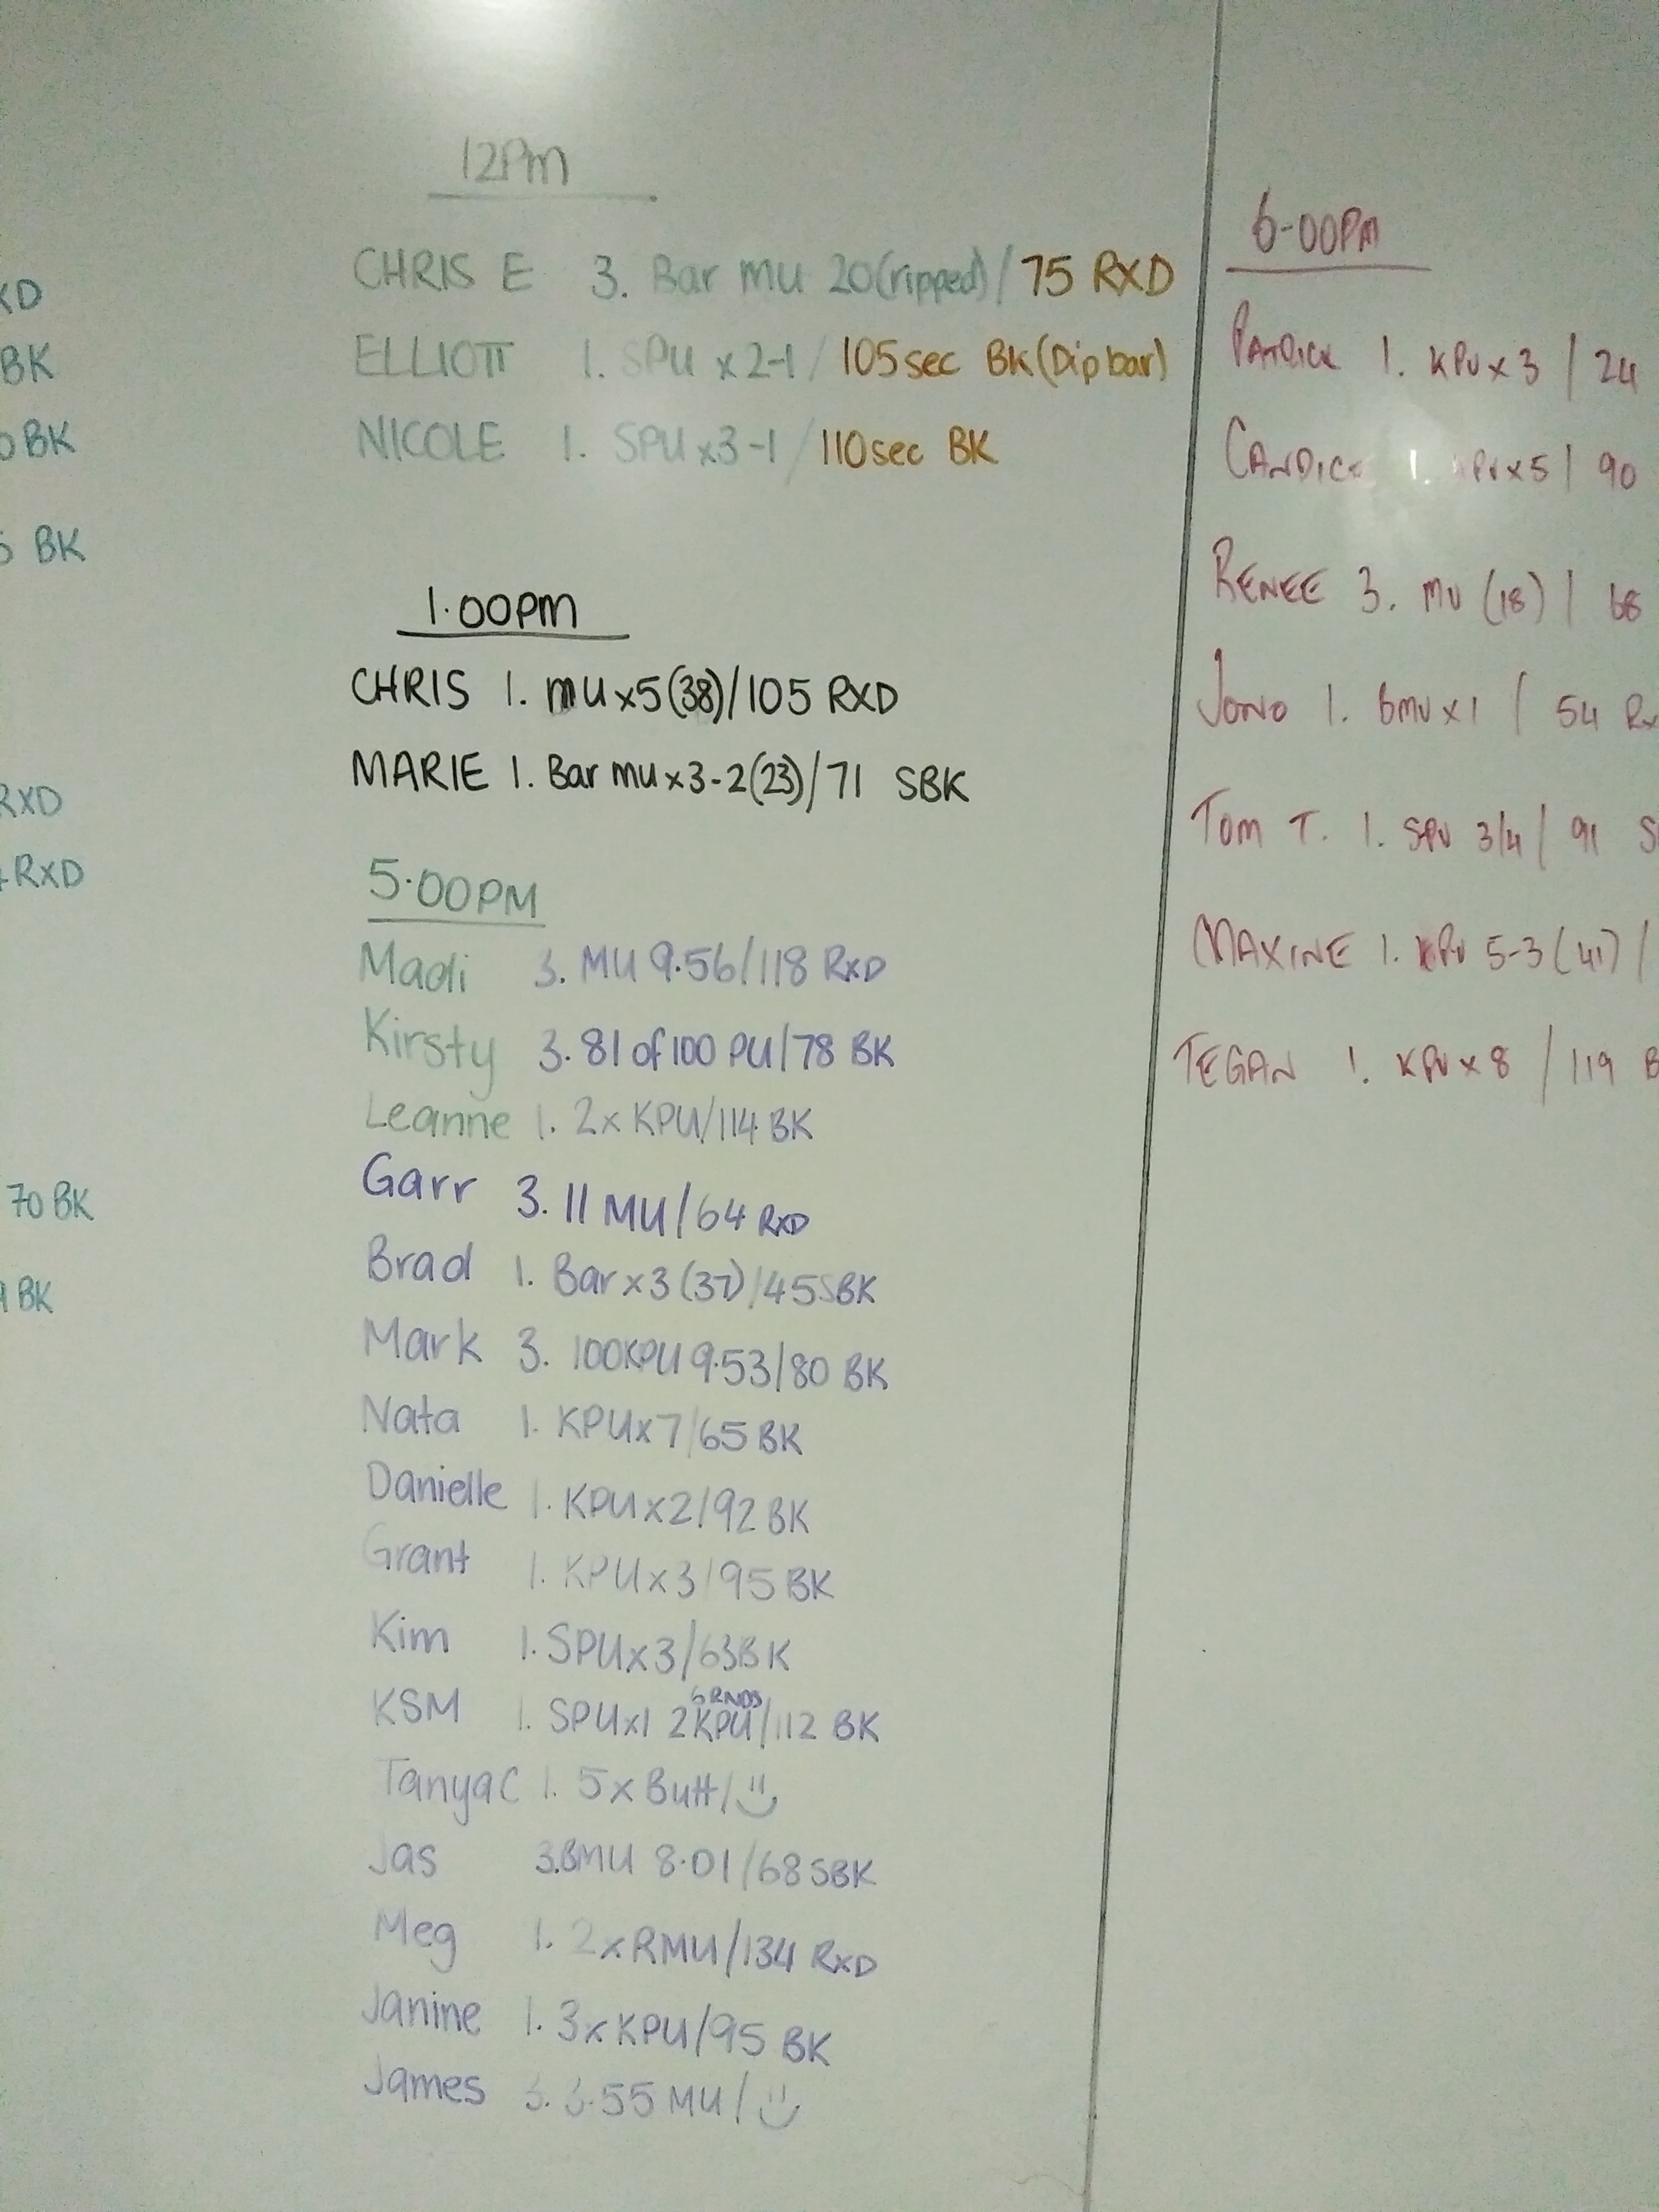 XD
BK
BK
BK
RXD
RXD
70 BK
BK
12Pm
CHRIS E 3. Bar mu 20(ripped) / 75 RXD
ELLIOTT 1. SPU x 2-1 / 105sec BK (Dip bar)
NICOLE 1. SPU x3-1 / 110sec BK
1.00pm
CHRIS 1. mu x5(38)/105 RXD
MARIE 1. Bar mu x3-2(23)/71 SBK
5.00PM
Madi 3. MU 9.56/118 RxD
Kirsty 3. 81 of 100 PU/78 BK
Leanne 1. 2x KPU/114 BK
Garr 3. 11 MU/64 RXD
Brad 1. Bar x3 (37)/45 SBK
Mark 3. 100KPU 9.53/80 BK
Nata 1. KPUx7/65 BK
Danielle 1. KPUx2/92 BK
Grant 1. KPUx3/95 BK
Kim 1. SPUx3/63BK
6 RNDS
KSM 1. SPUx1 2KPU/112 BK
Tanya C 1. 5x Butt/
Jas 3.BMU 8.01/68 SBK
Meg 1. 2xRMU/134 RxD
Janine 1. 3xKPU/95 BK
James 3. 55 MU/
6-00PM
PATRICK 1. KPU x 3 / 24
CANDICE 1. PU x5 / 90
RENEE 3. MU (18) / 68
JONO 1. BMU x1 / 54 Rx
TOM T. 1. SPU 3/4 / 91 S
MAXINE 1. KPU 5-3 (41) /
TEGAN 1. KPU x 8 / 119 B